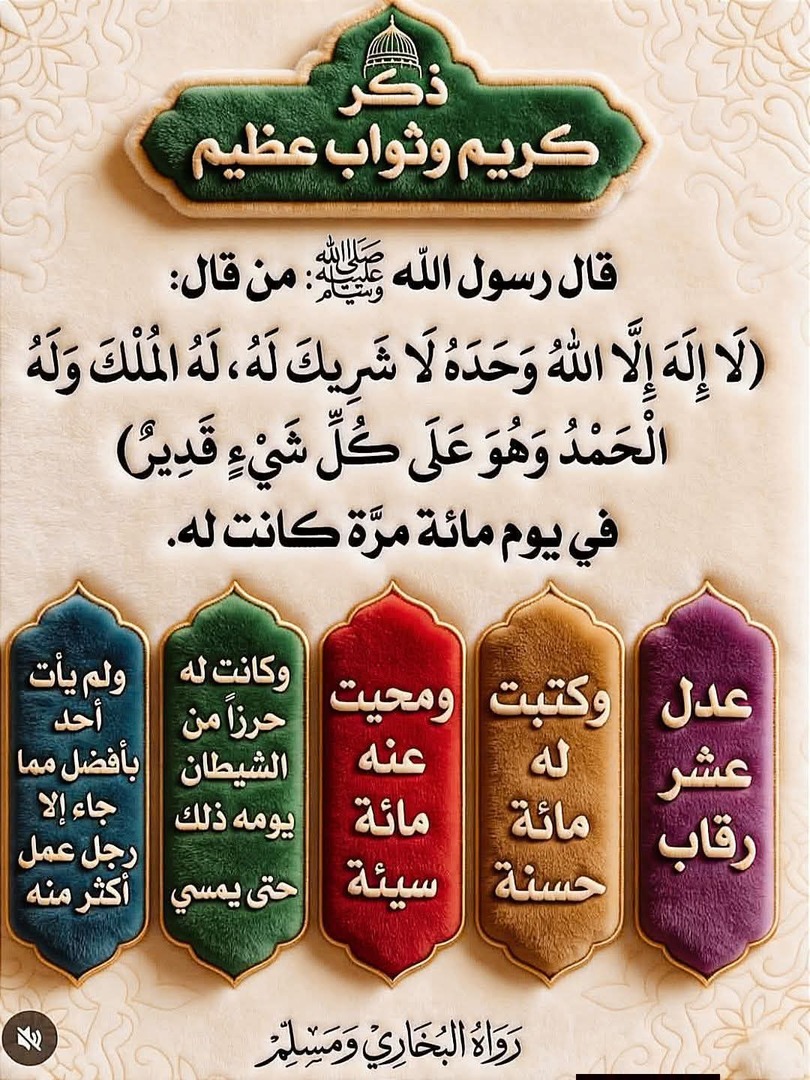 ذكر
كريم وثواب عظيم
قال رسول الله ﷺ: من قال:
(لَا إِلَهَ إِلَّا اللهُ وَحَدَهُ لَا شَرِيكَ لَهُ، لَهُ المُلْكَ وَلَهُ
الْحَمْدُ وَهُوَ عَلَى كُلِّ شَيْءٍ قَدِيرٌ)
في يوم مائة مرَّة كانت له.
عدل
عشر
رقاب
وكتبت
له
مائة
حسنة
ومحيت
عنه
مائة
سيئة
وكانت له
حرزاً من
الشيطان
يومه ذلك
حتى يمسي
ولم يأت
أحد
بأفضل مما
جاء إلا
رجل عمل
أكثر منه
رَوَاهُ البُخَارِيْ وَمَسِلِمّ